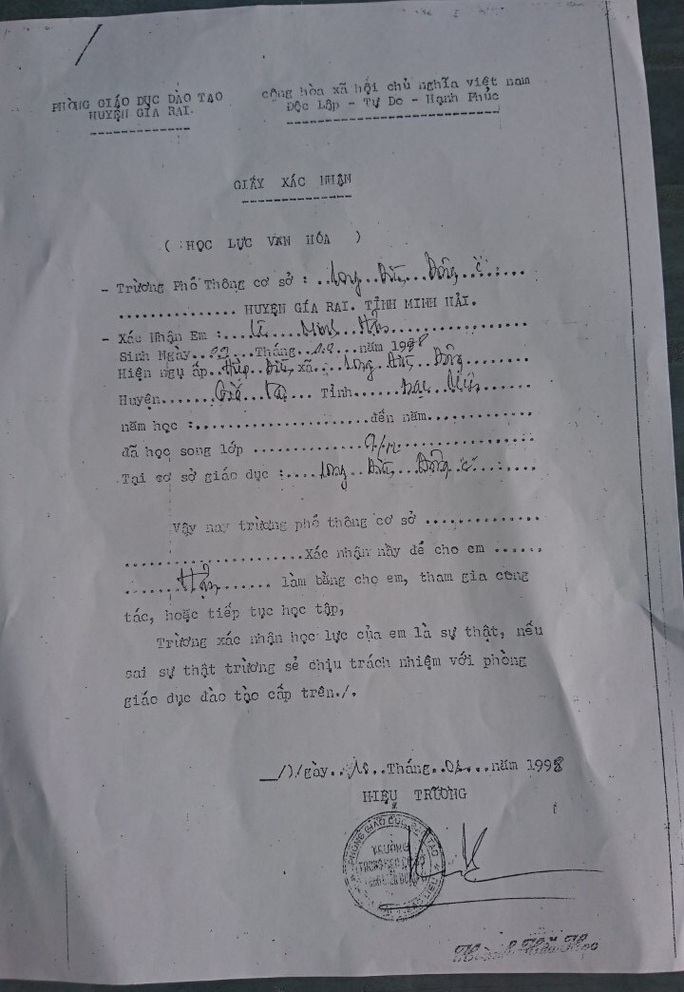 PHÒNG GIÁO DỤC DÀO TẠO
HUYỆN GÍA RAI.
cộng hòa xã hội chủ nghĩa việt nam
Độc Lập - Tự Do - Hạnh Phúc
GIẤY XÁC NHẬN
( HỌC LỰC VĂN HÓA )
- Trường Phổ Thông cơ sở : ..Long..Điền..Đông..C..:....
.............. HUYỆN GÍA RAI. TỈNH MINH HẢI.
- Xác Nhận Em :...... Minh
Sinh Ngày.. ..Tháng.. ...năm 199
Hiện ngụ ấp.. ..Điền..xã...Long..Điền..Đông........
Huyện......Giá...Rai....Tỉnh......Bạc..Liêu.....
năm học :.....................đến năm............
đã học song lớp ..............9/12..............
Tại cơ sở giáo dục :....Long..Điền..Đông..C..:....
Vậy nay trường phổ thông cơ sở ..............
......................Xác nhận nầy để cho em ......
.................. làm bằng cho em, tham gia công
tác, hoặc tiếp tục học tập,
Trường xác nhận học lực của em là sự thật, nếu
sai sự thật trường sẻ chịu trách nhiệm với phòng
giáo dục đào tạo cấp trên./.
Ngày.. ..Tháng.. ...năm 1998
HIỆU TRƯỞNG
PHÒNG GIÁO DỤC ĐÀO TẠO
TRƯỜNG